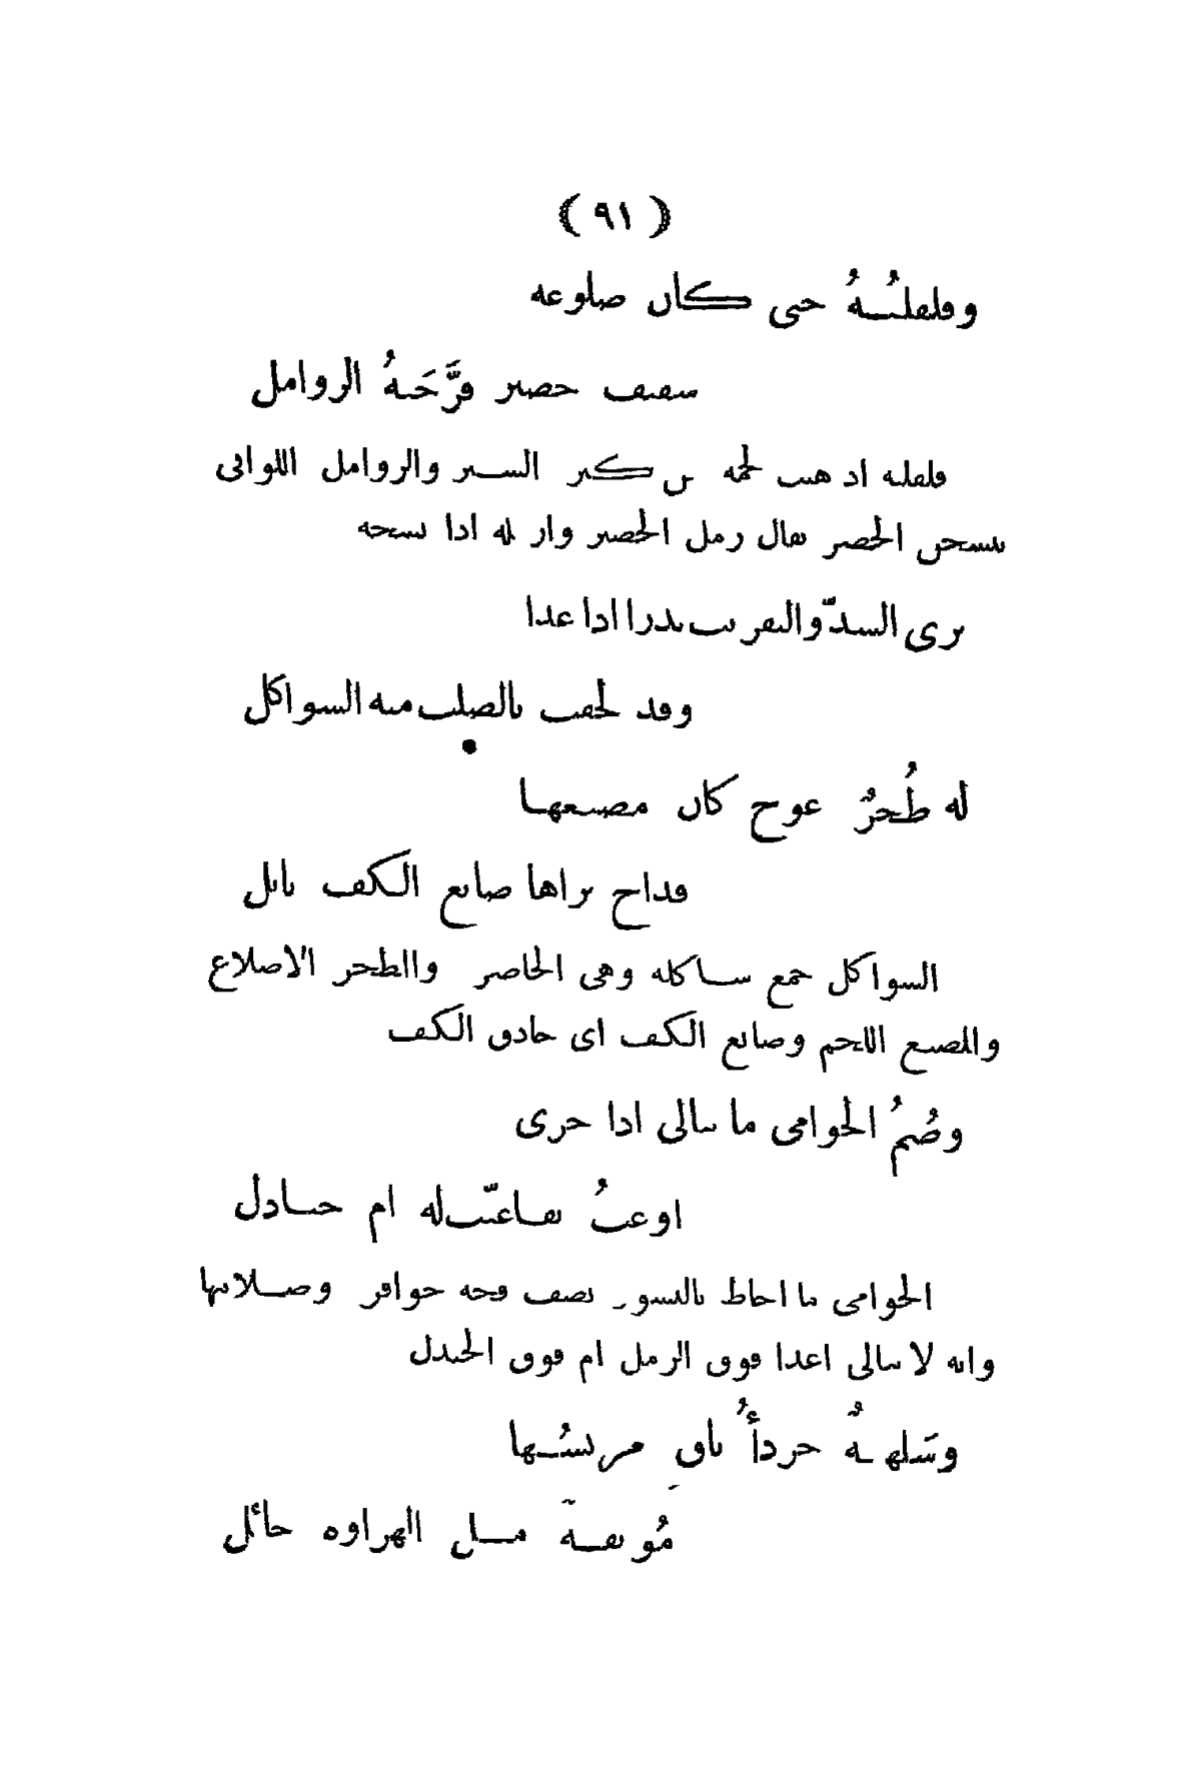 ﴿ ٩١ ﴾
وقلقلتُهُ حتى كان ضلوعه
سفيف حصير فرَّجَتهُ الروامل
قلقله اذهب لحمه من كثر السير والروامل اللواتى
ينسجن الحصير يقال رمل الحصير وارمله اذا نسجه
يرى الشدّ والتقريب نذرا اذا عدا
وقد لحقت بالصلب منه الشواكل
له طُحرٌ عوج كان مضيغها
قداح براها صانع الكف نابل
الشواكل جمع شاكلة وهى الخاصر والطحر الاضلاع
والمضيغ اللحم وصانع الكف اى حاذق الكف
وصُمُ الحوامى ما يبالى اذا جرى
اوعثُ نقا عنّت له ام جنادل
الحوامى ما احاط بالنسور يصف قحة حوافر وصلابتها
وانه لا يبالى اعدا فوق الرمل ام فوق الجندل
وسَلهبةٌ جردأُ باقِ مريسُها
مُوثقةٌ مثل الهراوة حائل